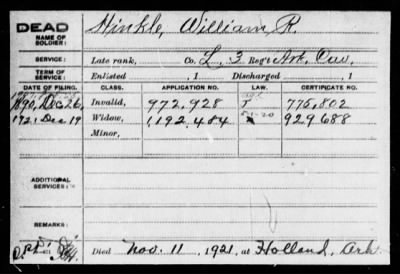 DEAD
NAME OF SOLDIER: Hinkle, William R.
SERVICE: Late rank, Co. L, 3 Reg't Ark. Cav.
TERM OF SERVICE: Enlisted , 1 Discharged , 1
DATE OF FILING. CLASS. APPLICATION NO. LAW. CERTIFICATE NO.
1890, Dec 26, Invalid, 972,928 775,802
1921, Dec 19 Widow, 1,192,484 929688
Minor,
ADDITIONAL SERVICES:
REMARKS:
Died Nov. 11, 1921, at Holland, Ark